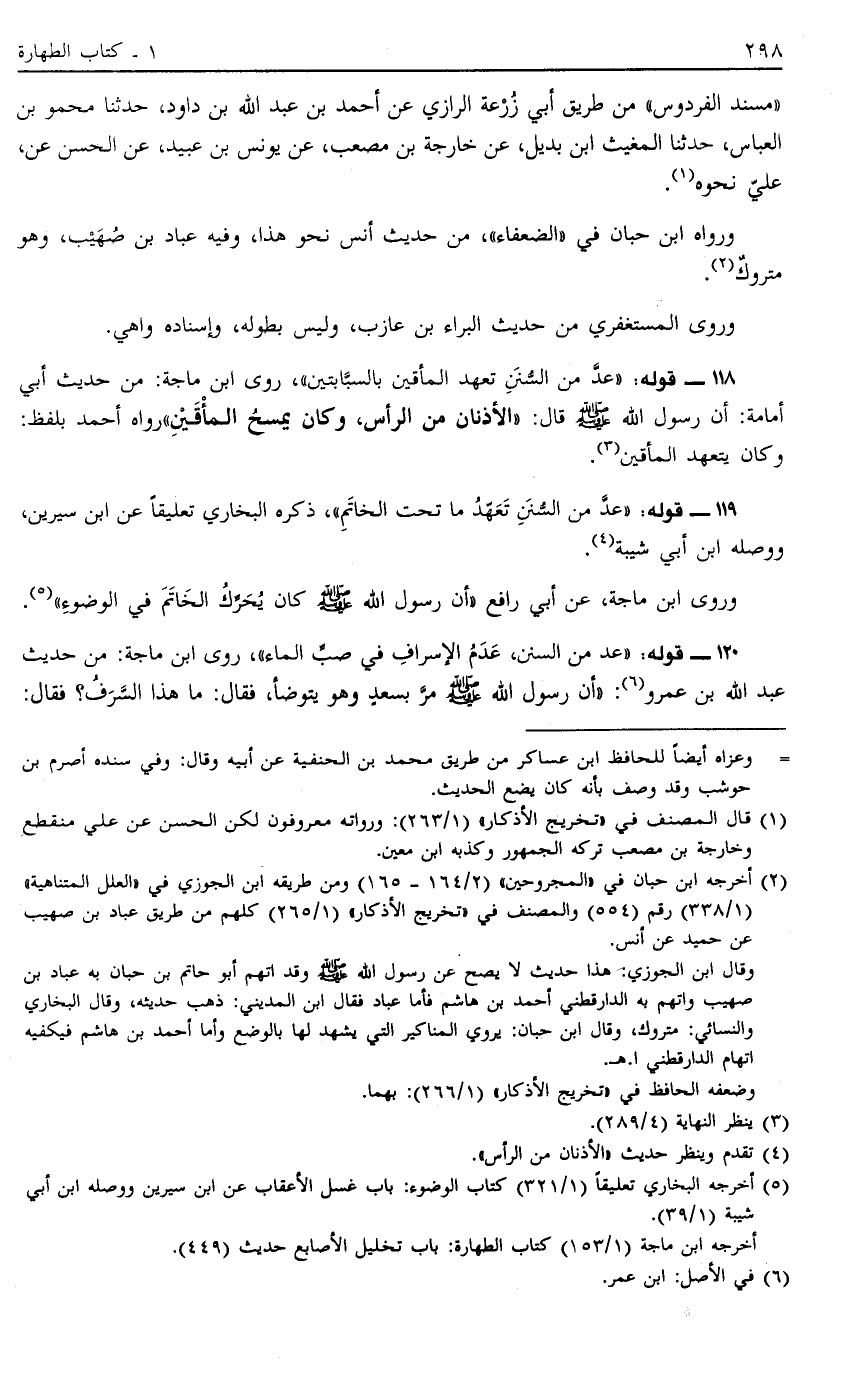 ٢٩٨ ١ - كتاب الطهارة
«مسند الفردوس» من طريق أبي زُرْعة الرازي عن أحمد بن عبد الله بن داود، حدثنا محمو بن
العباس، حدثنا المغيث ابن بديل، عن خارجة بن مصعب، عن يونس بن عبيد، عن الحسن عن،
عليّ نحوه(١).
ورواه ابن حبان في «الضعفاء»، من حديث أنس نحو هذا، وفيه عباد بن صُهَيْب، وهو
متروكٌ(٢).
وروى المستغفري من حديث البراء بن عازب، وليس بطوله، وإسناده واهي.
١١٨ ــ قوله: «عدَّ من السُّنَنِ تعهد المأقين بالسبَّابتين»، روى ابن ماجة: من حديث أبي
أمامة: أن رسول الله ﷺ قال: «الأذنان من الرأس، وكان يمسحُ المأْقَيْنِ»رواه أحمد بلفظ:
وكان يتعهد المأقين(٣).
١١٩ ــ قوله: «عدَّ من السُّنَنِ تَعَهّدُ ما تحت الخاتَمِ»، ذكره البخاري تعليقاً عن ابن سيرين،
ووصله ابن أبي شيبة(٤).
وروى ابن ماجة، عن أبي رافع «أن رسول الله ﷺ كان يُحَرِّكُ الخَاتَمَ في الوضوءِ»(٥).
١٢٠ ــ قوله: «عد من السنن، عَدَمُ الإسرافِ في صبِّ الماء»، روى ابن ماجة: من حديث
عبد الله بن عمرو(٦): «أن رسول الله ﷺ مرَّ بسعدٍ وهو يتوضأ، فقال: ما هذا السَّرَفُ؟ فقال:
= وعزاه أيضاً للحافظ ابن عساكر من طريق محمد بن الحنفية عن أبيه وقال: وفي سنده أصرم بن
حوشب وقد وصف بأنه كان يضع الحديث.
(١) قال المصنف في «تخريج الأذكار» (٢٦٣/١): ورواته معروفون لكن الحسن عن علي منقطع
وخارجة بن مصعب تركه الجمهور وكذبه ابن معين.
(٢) أخرجه ابن حبان في «المجروحين» (١٦٤/٢ - ١٦٥) ومن طريقه ابن الجوزي في «العلل المتناهية»
(٣٣٨/١) رقم (٥٥٤) والمصنف في «تخريج الأذكار» (٢٦٥/١) كلهم من طريق عباد بن صهيب
عن حميد عن أنس.
وقال ابن الجوزي: هذا حديث لا يصح عن رسول الله ﷺ وقد اتهم أبو حاتم بن حبان به عباد بن
صهيب واتهم به الدارقطني أحمد بن هاشم فأما عباد فقال ابن المديني: ذهب حديثه، وقال البخاري
والنسائي: متروك، وقال ابن حبان: يروي المناكير التي يشهد لها بالوضع وأما أحمد بن هاشم فيكفيه
اتهام الدارقطني ا.هـ.
وضعفه الحافظ في «تخريج الأذكار» (٢٦٦/١): بهما.
(٣) ينظر النهاية (٢٨٩/٤).
(٤) تقدم وينظر حديث «الأذنان من الرأس».
(٥) أخرجه البخاري تعليقاً (٣٢١/١) كتاب الوضوء: باب غسل الأعقاب عن ابن سيرين ووصله ابن أبي
شيبة (٣٩/١).
أخرجه ابن ماجة (١٥٣/١) كتاب الطهارة: باب تخليل الأصابع حديث (٤٤٩).
(٦) في الأصل: ابن عمر.